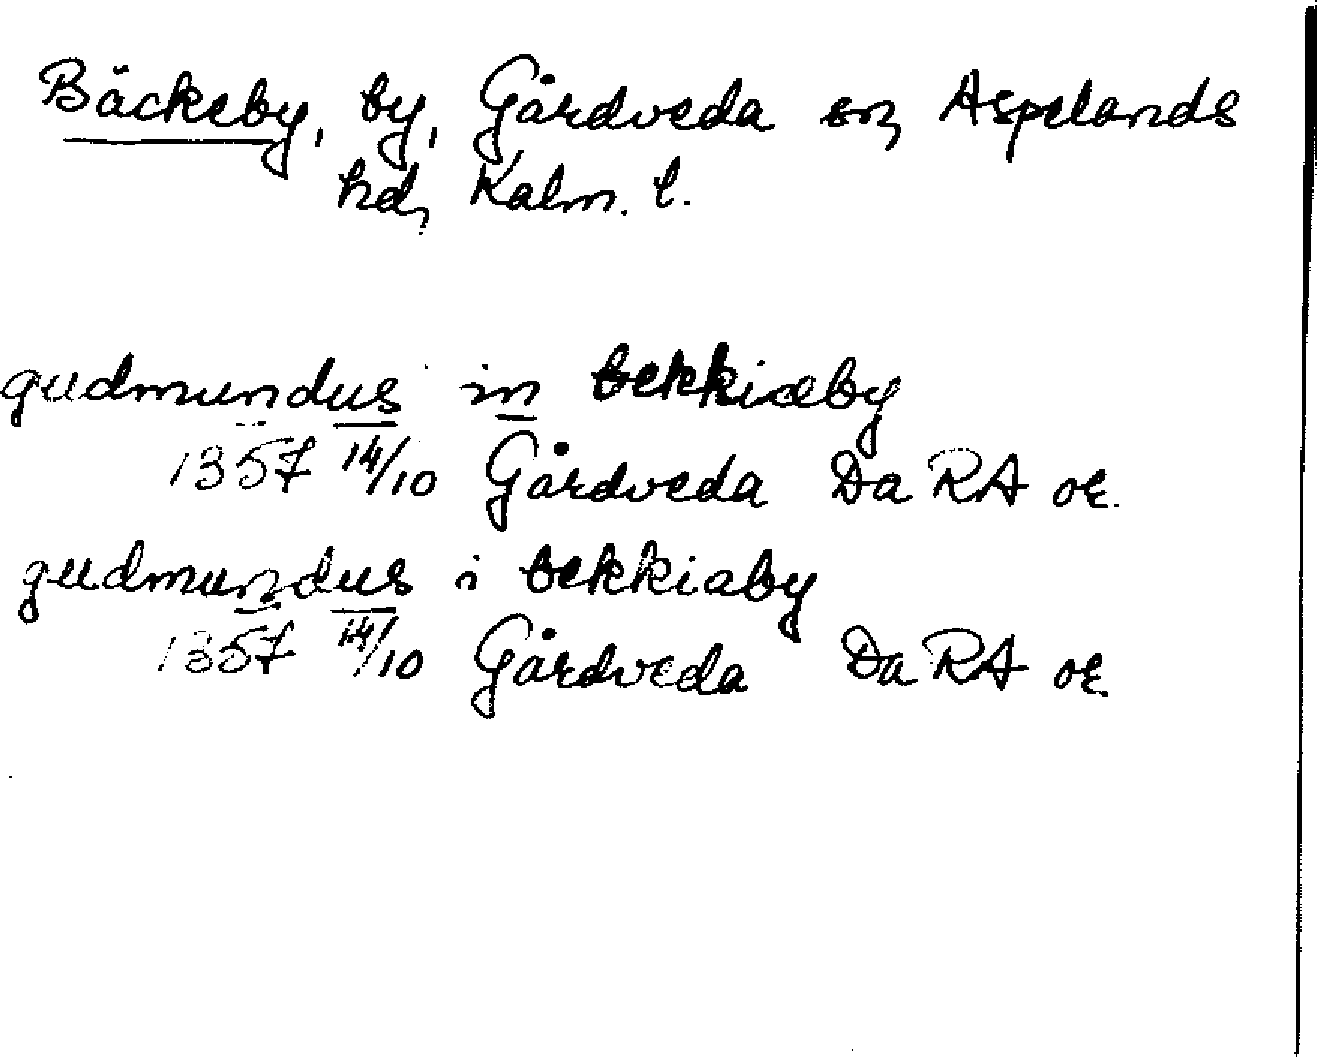 Bäckeby, by, Gårdveda sn, Aspelands
hd, Kalm. l.
gudmundus in bekkiæby
1357 14/10 Gårdveda Da RA or.
gudmundus i bekkiaby
1357 14/10 Gårdveda Da RA or.